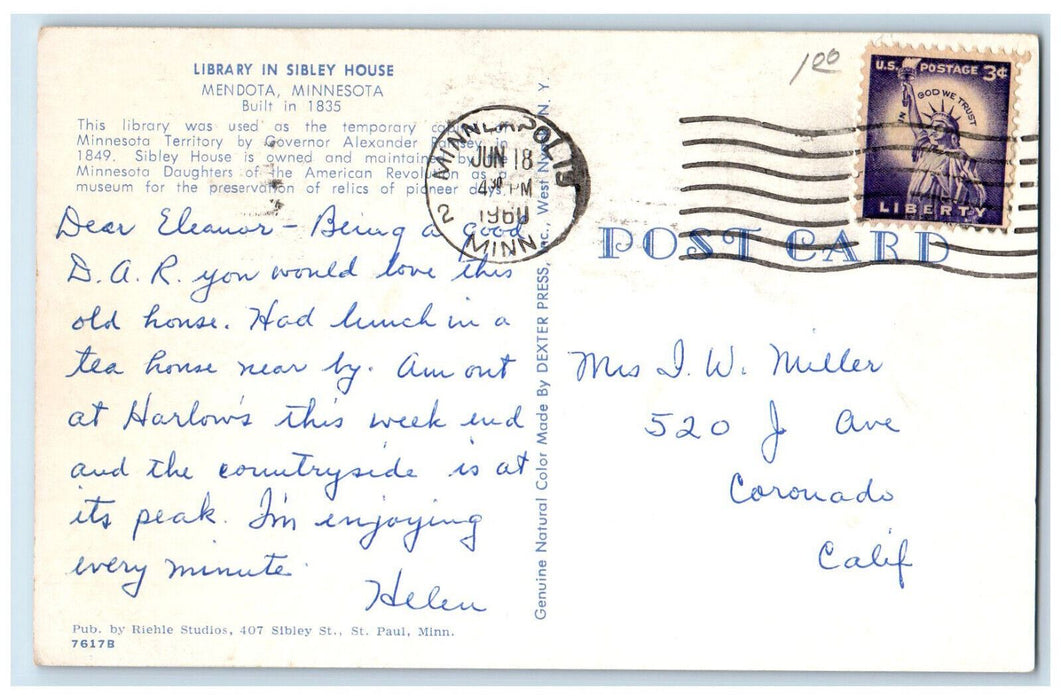 LIBRARY IN SIBLEY HOUSE
MENDOTA, MINNESOTA
Built in 1835
This library was used as the temporary of
Minnesota Territory by Governor Alexander Ramsey in
1849. Sibley House is owned and maintained by
Minnesota Daughters of the American Revolution as a
museum for the preservation of relics of pioneer days.
Dear Eleanor - Being a good
D.A.R. you would love this
old house. Had lunch in a
tea house near by. Am out
at Harlow's this week end
and the countryside is at
its peak. I'm enjoying
every minute
Helen
Pub. by Riehle Studios, 407 Sibley St., St. Paul, Minn.
7617B
Genuine Natural Color Made By DEXTER PRESS, Inc., West Nyack, N. Y.
MINNEAPOLIS
JUN 18
4 30 PM
1960
2 MINN
1.00
U.S. POSTAGE 3¢
IN GOD WE TRUST
LIBERTY
POST CARD
Mrs I. W. Miller
520 J Ave
Coronado
Calif